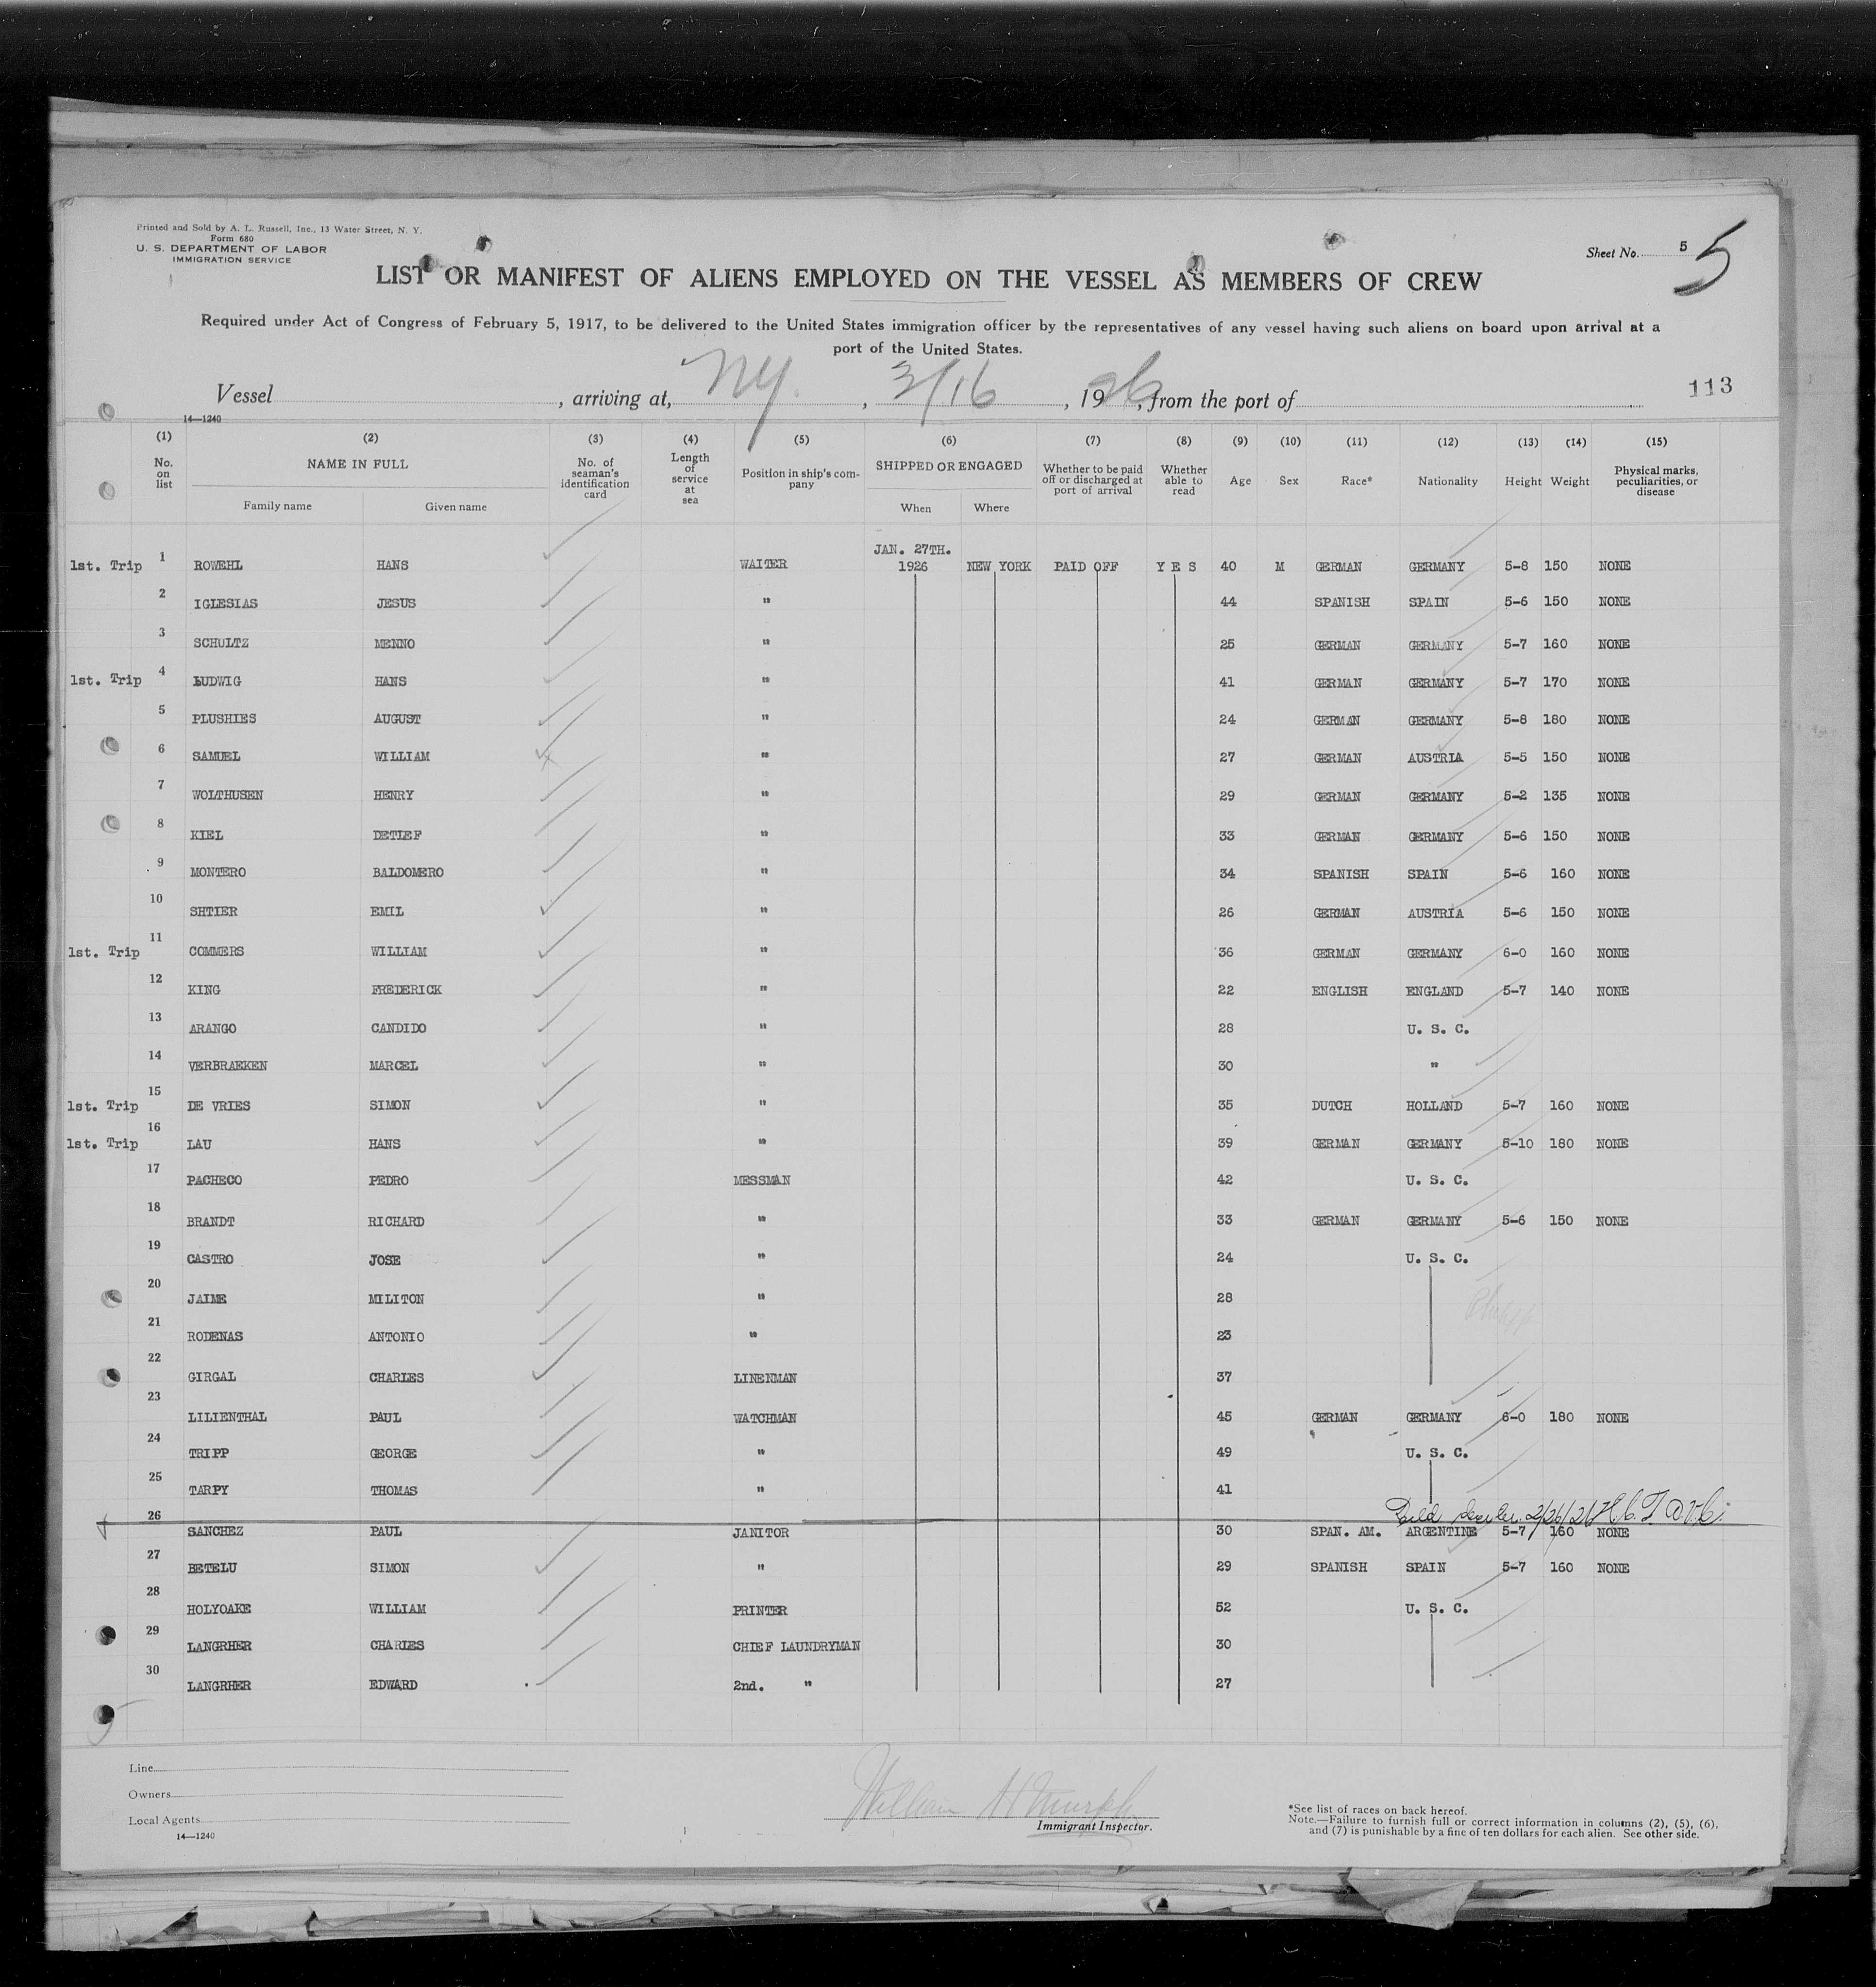 Printed and Sold by A. L. Russell, Inc., 13 Water Street, N. Y.
Form 680
U. S. DEPARTMENT OF LABOR
IMMIGRATION SERVICE
Sheet No. 5 5
LIST OR MANIFEST OF ALIENS EMPLOYED ON THE VESSEL AS MEMBERS OF CREW
Required under Act of Congress of February 5, 1917, to be delivered to the United States immigration officer by the representatives of any vessel having such aliens on board upon arrival at a
port of the United States.
Vessel , arriving at, NY. , 3/16 , 1926, from the port of 113
14—1240
(1) (2) (3) (4) (5) (6) (7) (8) (9) (10) (11) (12) (13) (14) (15)
No. on list NAME IN FULL Family name Given name No. of seaman's identification card Length of service at sea Position in ship's company SHIPPED OR ENGAGED When Where Whether to be paid off or discharged at port of arrival Whether able to read Age Sex Race* Nationality Height Weight Physical marks, peculiarities, or disease
JAN. 27TH.
1st. Trip 1 ROWEHL HANS WAITER 1926 NEW YORK PAID OFF YES 40 M GERMAN GERMANY 5-8 150 NONE
2 IGLESIAS JESUS " 44 SPANISH SPAIN 5-6 150 NONE
3 SCHULTZ MENNO " 25 GERMAN GERMANY 5-7 160 NONE
1st. Trip 4 LUDWIG HANS " 41 GERMAN GERMANY 5-7 170 NONE
5 PLUSHIES AUGUST " 24 GERMAN GERMANY 5-8 180 NONE
6 SAMUEL WILLIAM " 27 GERMAN AUSTRIA 5-5 150 NONE
7 WOLTHUSEN HENRY " 29 GERMAN GERMANY 5-2 135 NONE
8 KIEL DETLEF " 33 GERMAN GERMANY 5-6 150 NONE
9 MONTERO BALDOMERO " 34 SPANISH SPAIN 5-6 160 NONE
10 SHTIER EMIL " 26 GERMAN AUSTRIA 5-6 150 NONE
1st. Trip 11 COMMERS WILLIAM " 36 GERMAN GERMANY 6-0 160 NONE
12 KING FREDERICK " 22 ENGLISH ENGLAND 5-7 140 NONE
13 ARANGO CANDIDO " 28 U. S. C.
14 VERBRAEKEN MARCEL " 30 "
1st. Trip 15 DE VRIES SIMON " 35 DUTCH HOLLAND 5-7 160 NONE
1st. Trip 16 LAU HANS " 39 GERMAN GERMANY 5-10 180 NONE
17 PACHECO PEDRO MESSMAN 42 U. S. C.
18 BRANDT RICHARD " 33 GERMAN GERMANY 5-6 150 NONE
19 CASTRO JOSE " 24 U. S. C.
20 JAIME MILITON " 28
21 RODENAS ANTONIO " 23
22 GIRGAL CHARLES LINENMAN 37
23 LILIENTHAL PAUL WATCHMAN 45 GERMAN GERMANY 6-0 180 NONE
24 TRIPP GEORGE " 49 U. S. C.
25 TARPY THOMAS " 41
26 SANCHEZ PAUL JANITOR 30 SPAN. AM. ARGENTINE 5-7 160 NONE
27 BETELU SIMON " 29 SPANISH SPAIN 5-7 160 NONE
28 HOLYOAKE WILLIAM PRINTER 52 U. S. C.
29 LANGRHER CHARLES CHIEF LAUNDRYMAN 30
30 LANGRHER EDWARD 2nd. " 27
Line
Owners
Local Agents
14—1240
William H Murphy
Immigrant Inspector.
*See list of races on back hereof.
Note.—Failure to furnish full or correct information in columns (2), (5), (6),
and (7) is punishable by a fine of ten dollars for each alien. See other side.